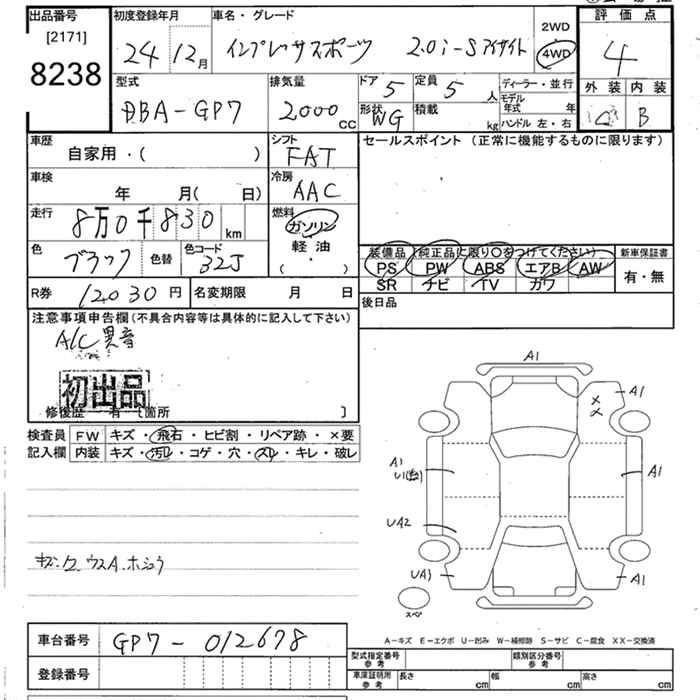 出品番号 初度登録年月 車名・グレード 2WD 評価点
[2171] 24 12月 インプレッサスポーツ 2.0i-Sアイサイト 4WD 4
8238 型式 排気量 ドア 5 定員 5人 ディーラー・並行 外装 内装
DBA-GP7 2000cc 形状 WG 積載 kg モデル年式 年 B
ハンドル 左・右
車歴 シフト セールスポイント (正常に機能するものに限ります)
自家用・( ) FAT
車検 冷房
年 月( 日) AAC
走行 燃料
8万0千830km ガソリン
色 ブラック 色替 色コード 32J 軽油
( ・ )
装備品 (純正品に限り○をつけてください) 新車保証書
PS PW ABS エアB AW 有・無
SR ナビ TV カワ
R券 12030円 名変期限 月 日 後日品
注意事項申告欄(不具合内容等は具体的に記入して下さい)
A/C異音
初出品
修復歴 有 [箇所 ]
検査員 FW キズ・飛石・ヒビ割・リペア跡・×要
記入欄 内装 キズ・汚レ・コゲ・穴・スレ・キレ・破レ
A1
A1
A1
A1
UA2
UA1
A1
スペア
A-キズ E-エクボ U-凹み W-補修跡 S-サビ C-腐食 XX-交換済
車台番号 GP7-012678
型式指定番号 参考 類別区分番号 参考
登録番号 車庫証明用 参考 長さ cm 幅 cm 高さ cm